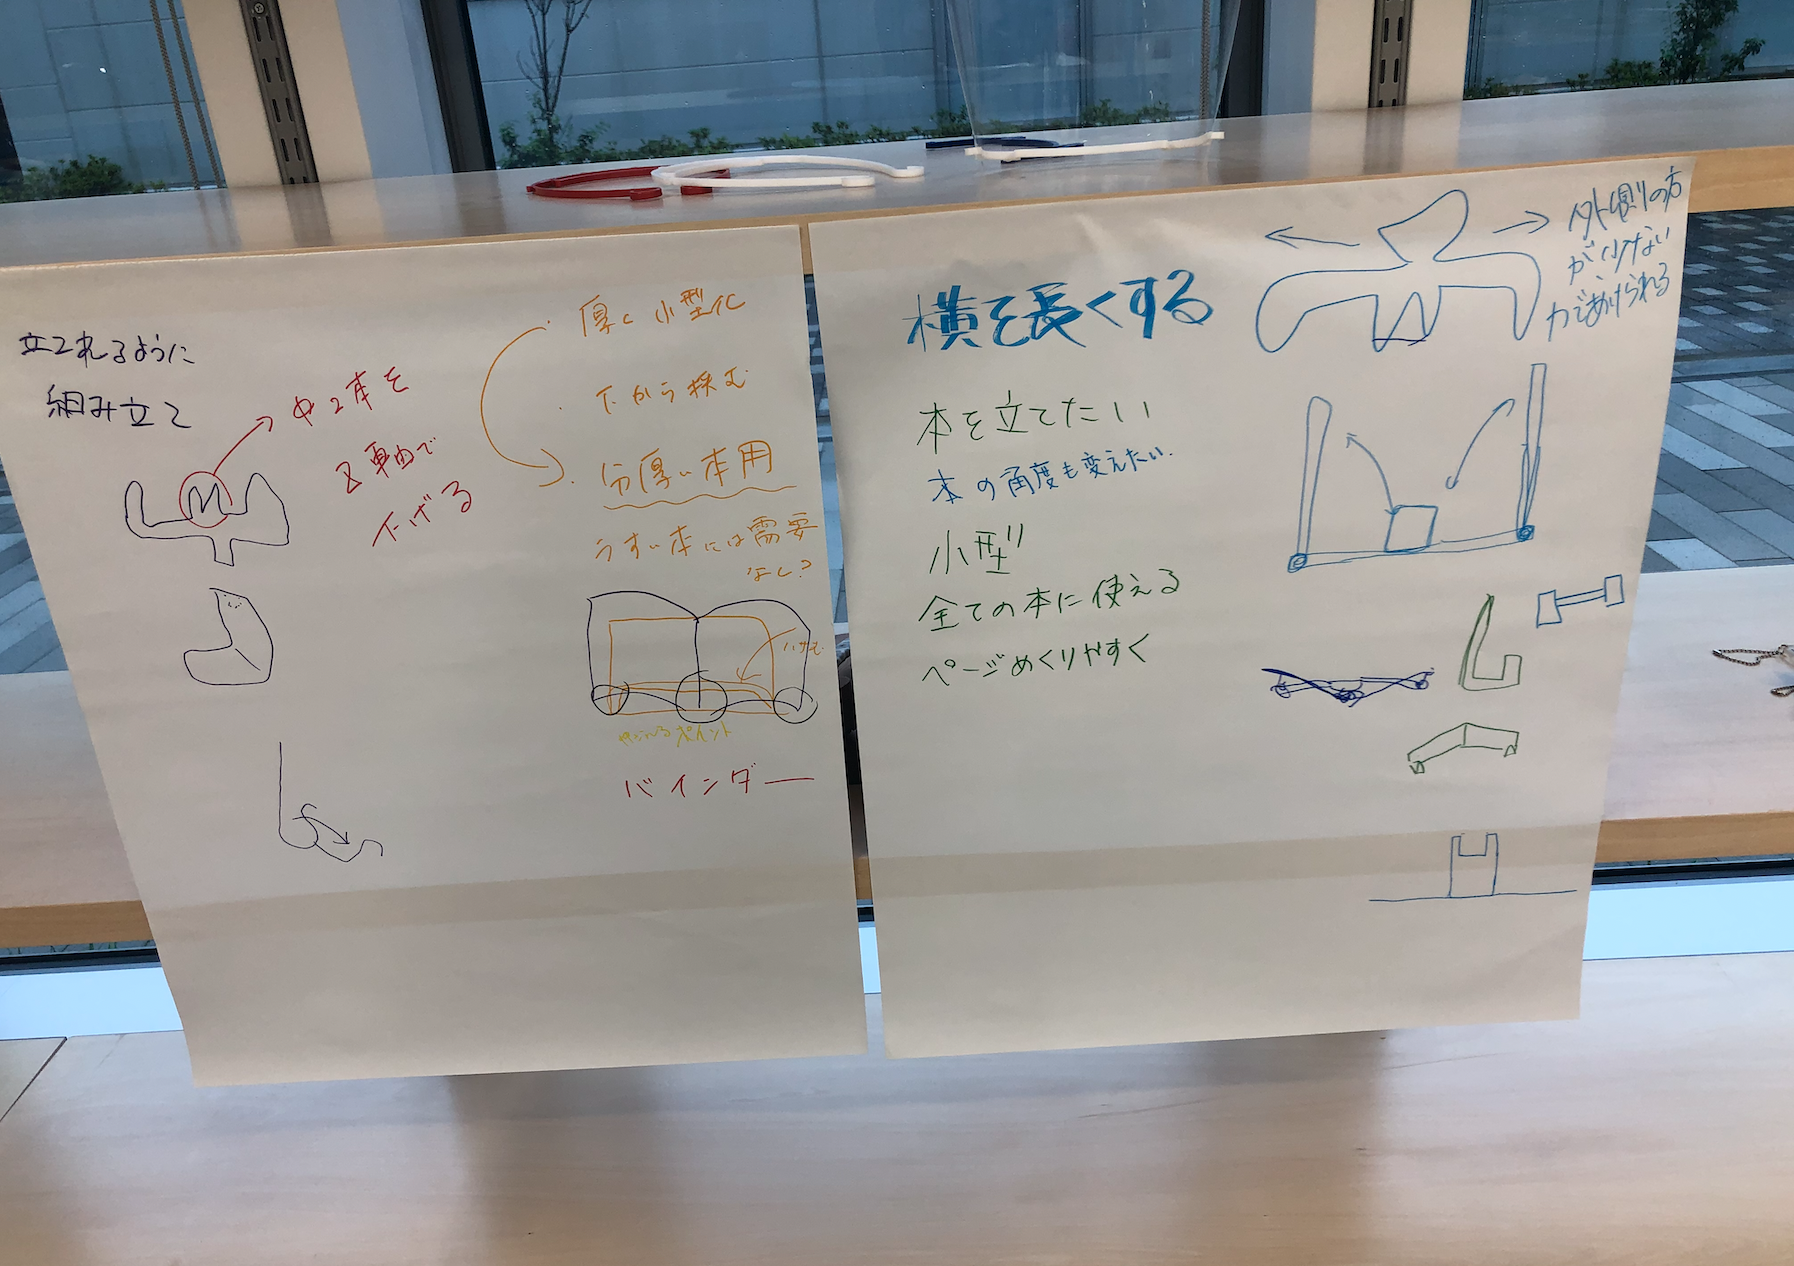 立てれるように
組み立て
中2本を
Z軸で
下げる
厚く小型化
下から挟む
分厚い本用
うすい本には需要
なし?
ハサむ
ポイント
バインダー
横を長くする
外側の方
が少ない
力であけられる
本を立てたい
本の角度も変えたい.
小型
全ての本に使える
ページめくりやすく